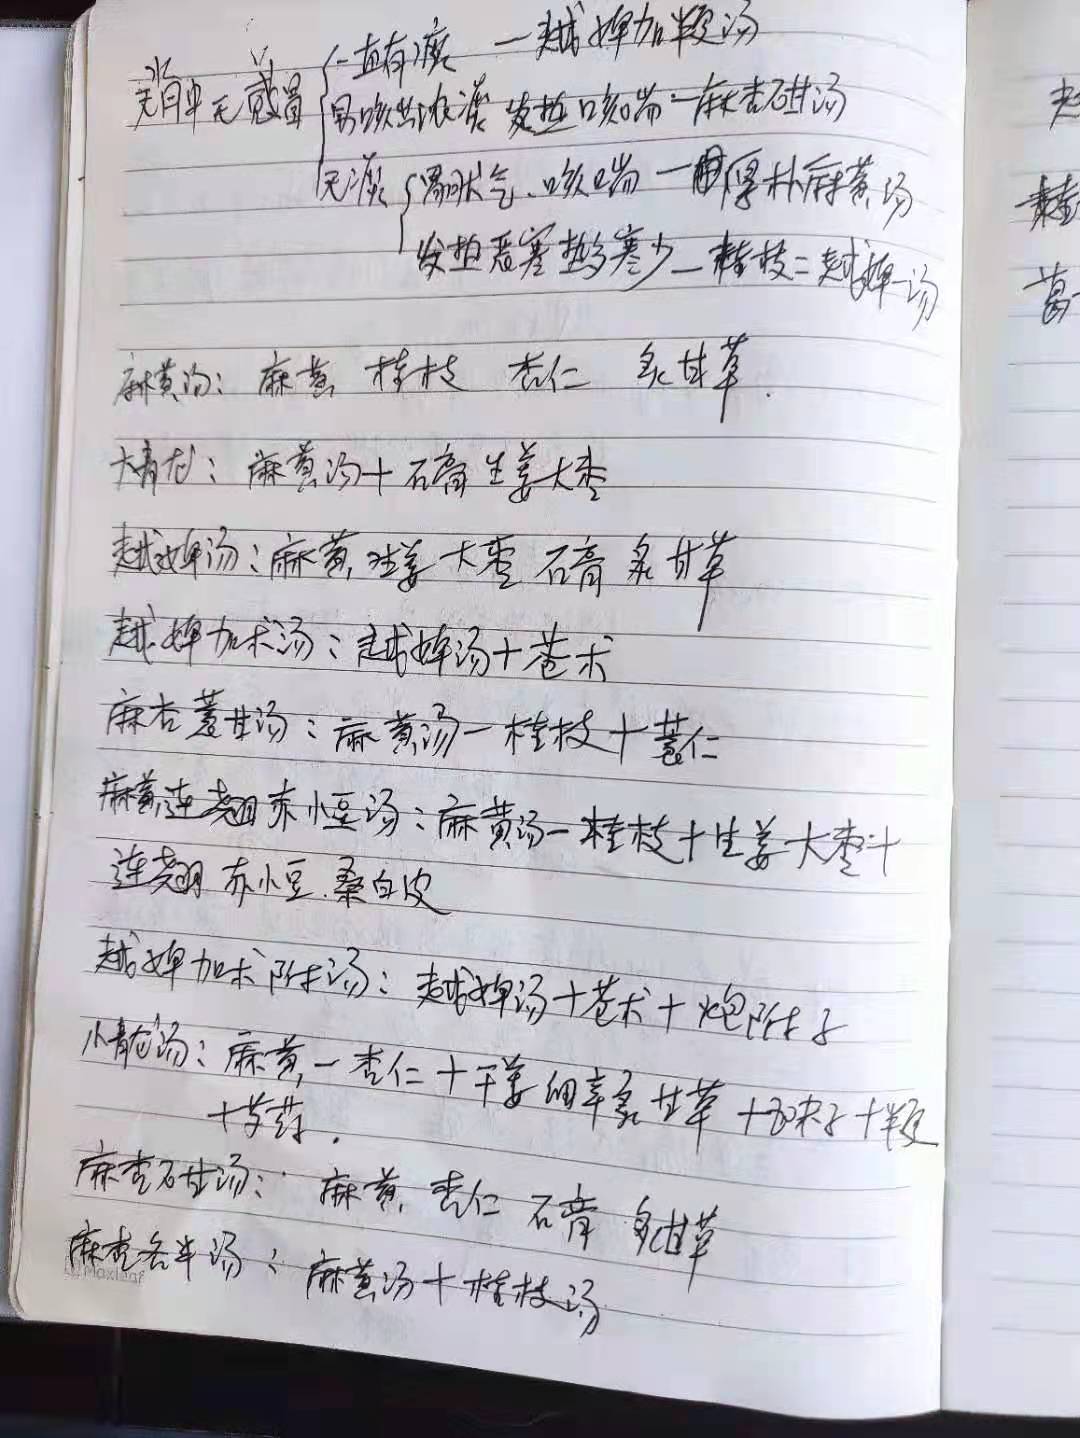 一直有痰 一越婢加半夏汤
背 无感冒
易咳出浓痰 发热咳喘一麻杏石甘汤
无痰 胃胀气、咳喘 一厚朴麻黄汤
发热恶寒热多寒少一桂枝二越婢一汤
麻黄汤：麻黄 桂枝 杏仁 炙甘草.
大青龙：麻黄汤+石膏生姜大枣
越婢汤：麻黄 生姜 大枣 石膏 炙甘草
越婢加术汤：越婢汤+苍术
麻杏薏甘汤：麻黄汤一桂枝+薏仁
麻黄连翘赤小豆汤：麻黄汤一桂枝+生姜大枣+
连翘 赤小豆.桑白皮
越婢加术附汤：越婢汤+苍术+炮附子
小青龙汤：麻黄一杏仁+干姜细辛炙甘草+五味子+半夏
+芍药.
麻杏石甘汤：麻黄 杏仁 石膏 炙甘草
麻杏各半汤：麻黄汤+桂枝汤
Maxleaf
葛